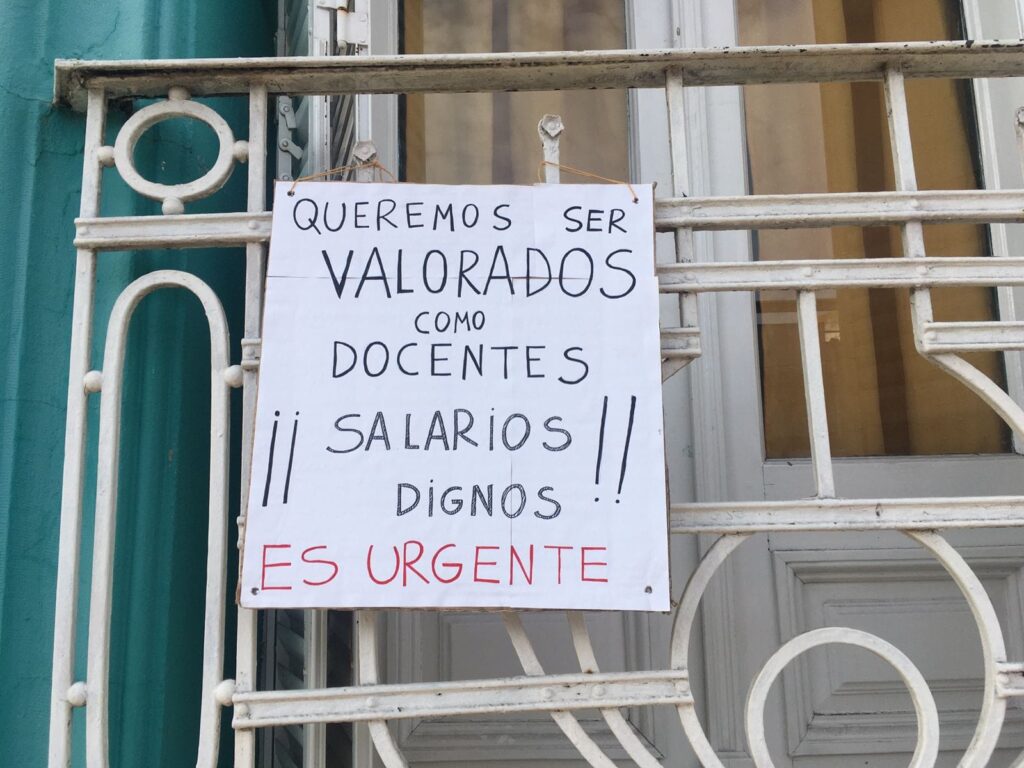 QUEREMOS SER
VALORADOS
COMO
DOCENTES
¡¡ SALARIOS !!
DIGNOS
ES URGENTE